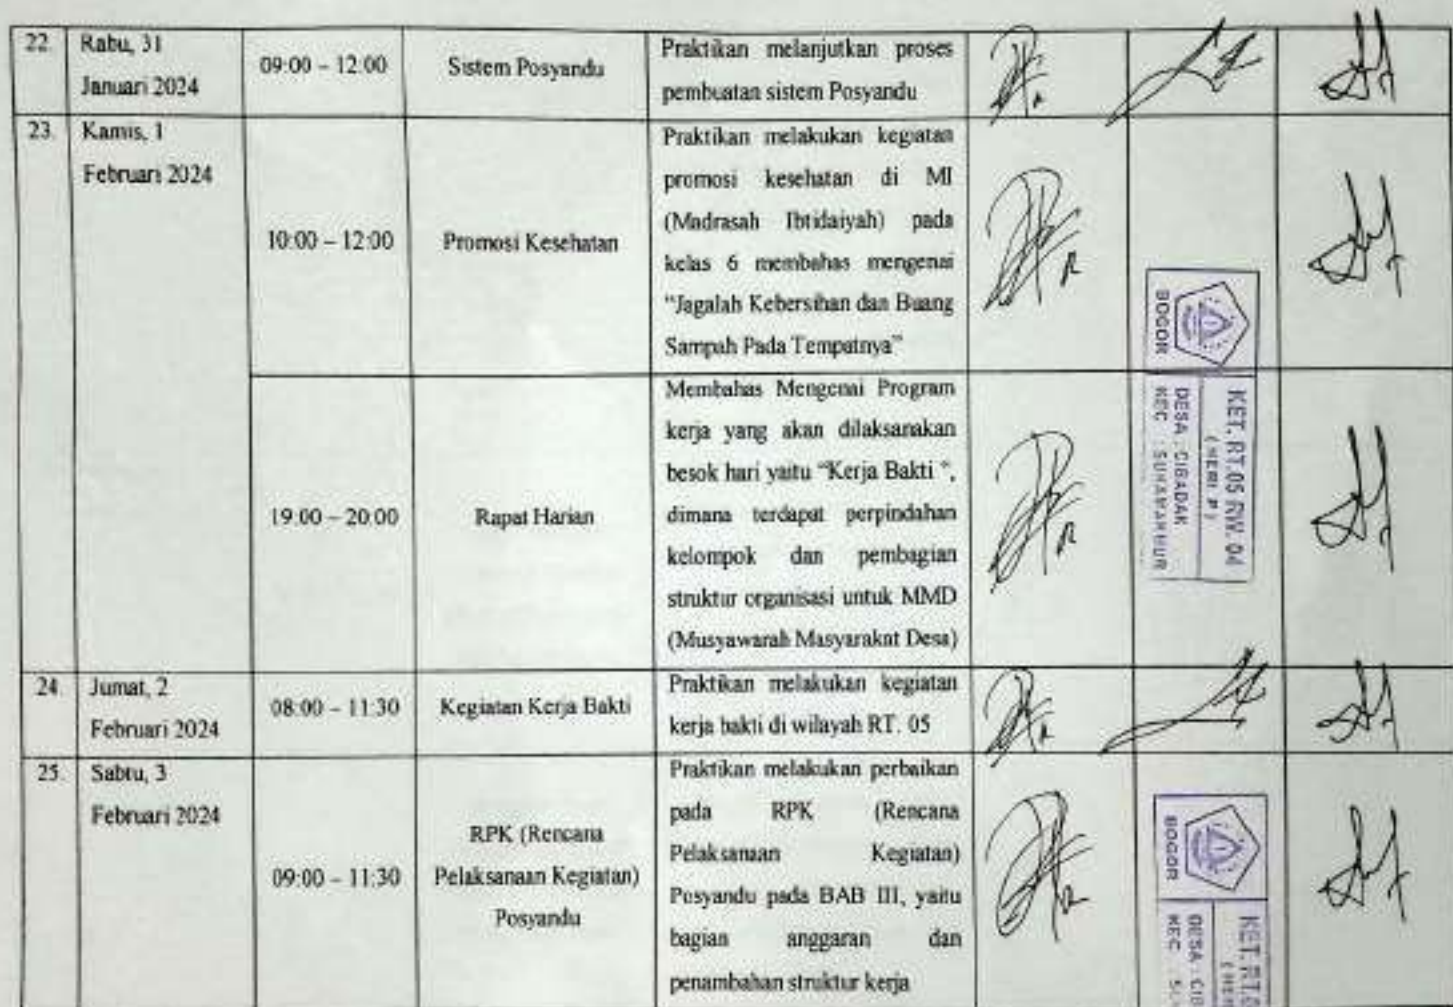 22
Rabu, 31
Januari 2024
09:00 – 12:00
Sistem Posyandu
Praktikan melanjutkan proses
pembuatan sistem Posyandu
23.
Kamis, 1
Februari 2024
10:00 – 12:00
Promosi Kesehatan
Praktikan melakukan kegiatan
promosi kesehatan di MI
(Madrasah Ibtidaiyah) pada
kelas 6 membahas mengenai
“Jagalah Kebersihan dan Buang
Sampah Pada Tempatnya”
19:00 – 20:00
Rapat Harian
Membahas Mengenai Program
kerja yang akan dilaksanakan
besok hari yaitu “Kerja Bakti “,
dimana terdapat perpindahan
kelompok dan pembagian
struktur organisasi untuk MMD
(Musyawarah Masyarakat Desa)
KET. RT.05 RW. 04
( HERI P )
DESA : CIBADAK
KEC : SUKAMAKMUR
BOGOR
24
Jumat, 2
Februari 2024
08:00 – 11:30
Kegiatan Kerja Bakti
Praktikan melakukan kegiatan
kerja bakti di wilayah RT. 05
25.
Sabtu, 3
Februari 2024
09:00 – 11:30
RPK (Rencana
Pelaksanaan Kegiatan)
Posyandu
Praktikan melakukan perbaikan
pada RPK (Rencana
Pelaksanaan Kegiatan)
Posyandu pada BAB III, yaitu
bagian anggaran dan
penambahan struktur kerja
KET. RT.
DESA : CIB
KEC :
BOGOR